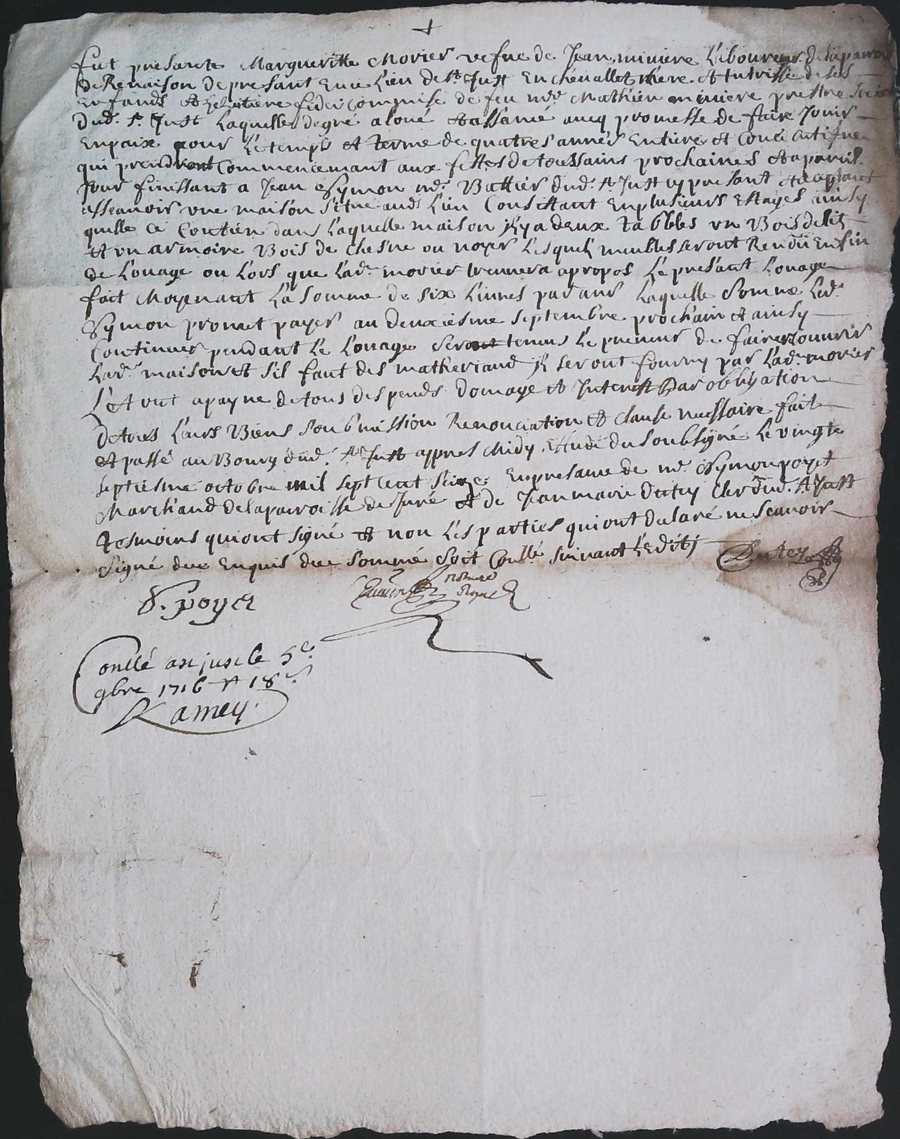 +
fut presante Margueritte Morier vefue de Jean miniere Laboureur de la parroi
de Renaison de presant en ce Lieu de St Just En chevallet mere et tutrisse de ses
Enfands et heritiere fideicommise de feu mre Mathieu miniere prestre
dud. St Just Laquelle de gré a loué et assansé avecq promesse de faire Jouir
En paix pour Le temps et terme de quatres années Entiere et Consecutifue
qui prendront Commencemant aux festes de toussains prochaines et a pareil
Jour finissant a Jean Symon md. Battier dud. St Just cy presant et acceptant
assavoir une maison scitue aud. Lieu Consistant En plusieurs Estages ainsy
quelle ce Contien dans Laquelle maison Jl y a deux tabbles un Bois de lit
et un armoire Bois de chesne ou noyer Lesquel meubles seront Rendu En fin
de Louage ou Lors que Lade morier trennera a propos Le presant Louage
fait Moyenant La somme de six Livres par ans Laquelle somme Led.
Symon promet payer au deuxiesme septembre prochain et ainsy
Continuer pendant Le Louage seront tenus Le preneur de faire Couurir
Lade maison et sil faut des matheriaud Jl seront fourny par Lade morier
Le tout a payne de tous despends domage et Interest Par obligation
de tous Leurs Biens soubmission Renonciation et clause necessaire fait
et passé au Bourg dud. St Just appres Midy Estude du soubsigné Le vingte
septiesme octobre mil sept cent seize En presance de mre Symon poyet
Marchand de la parroisse de Juré et de Jean marie dutey Clerc dud. St Just
tesmoins qui ont signé et non Les parties qui ont declaré ne scavoir
signé de ce Enquis due sommé soit Conllé suivant L'Edit
Dutey
S. poyet
notaire
Royal
Conllé a st just le 5e
9bre 1716 R 18s
Ramey